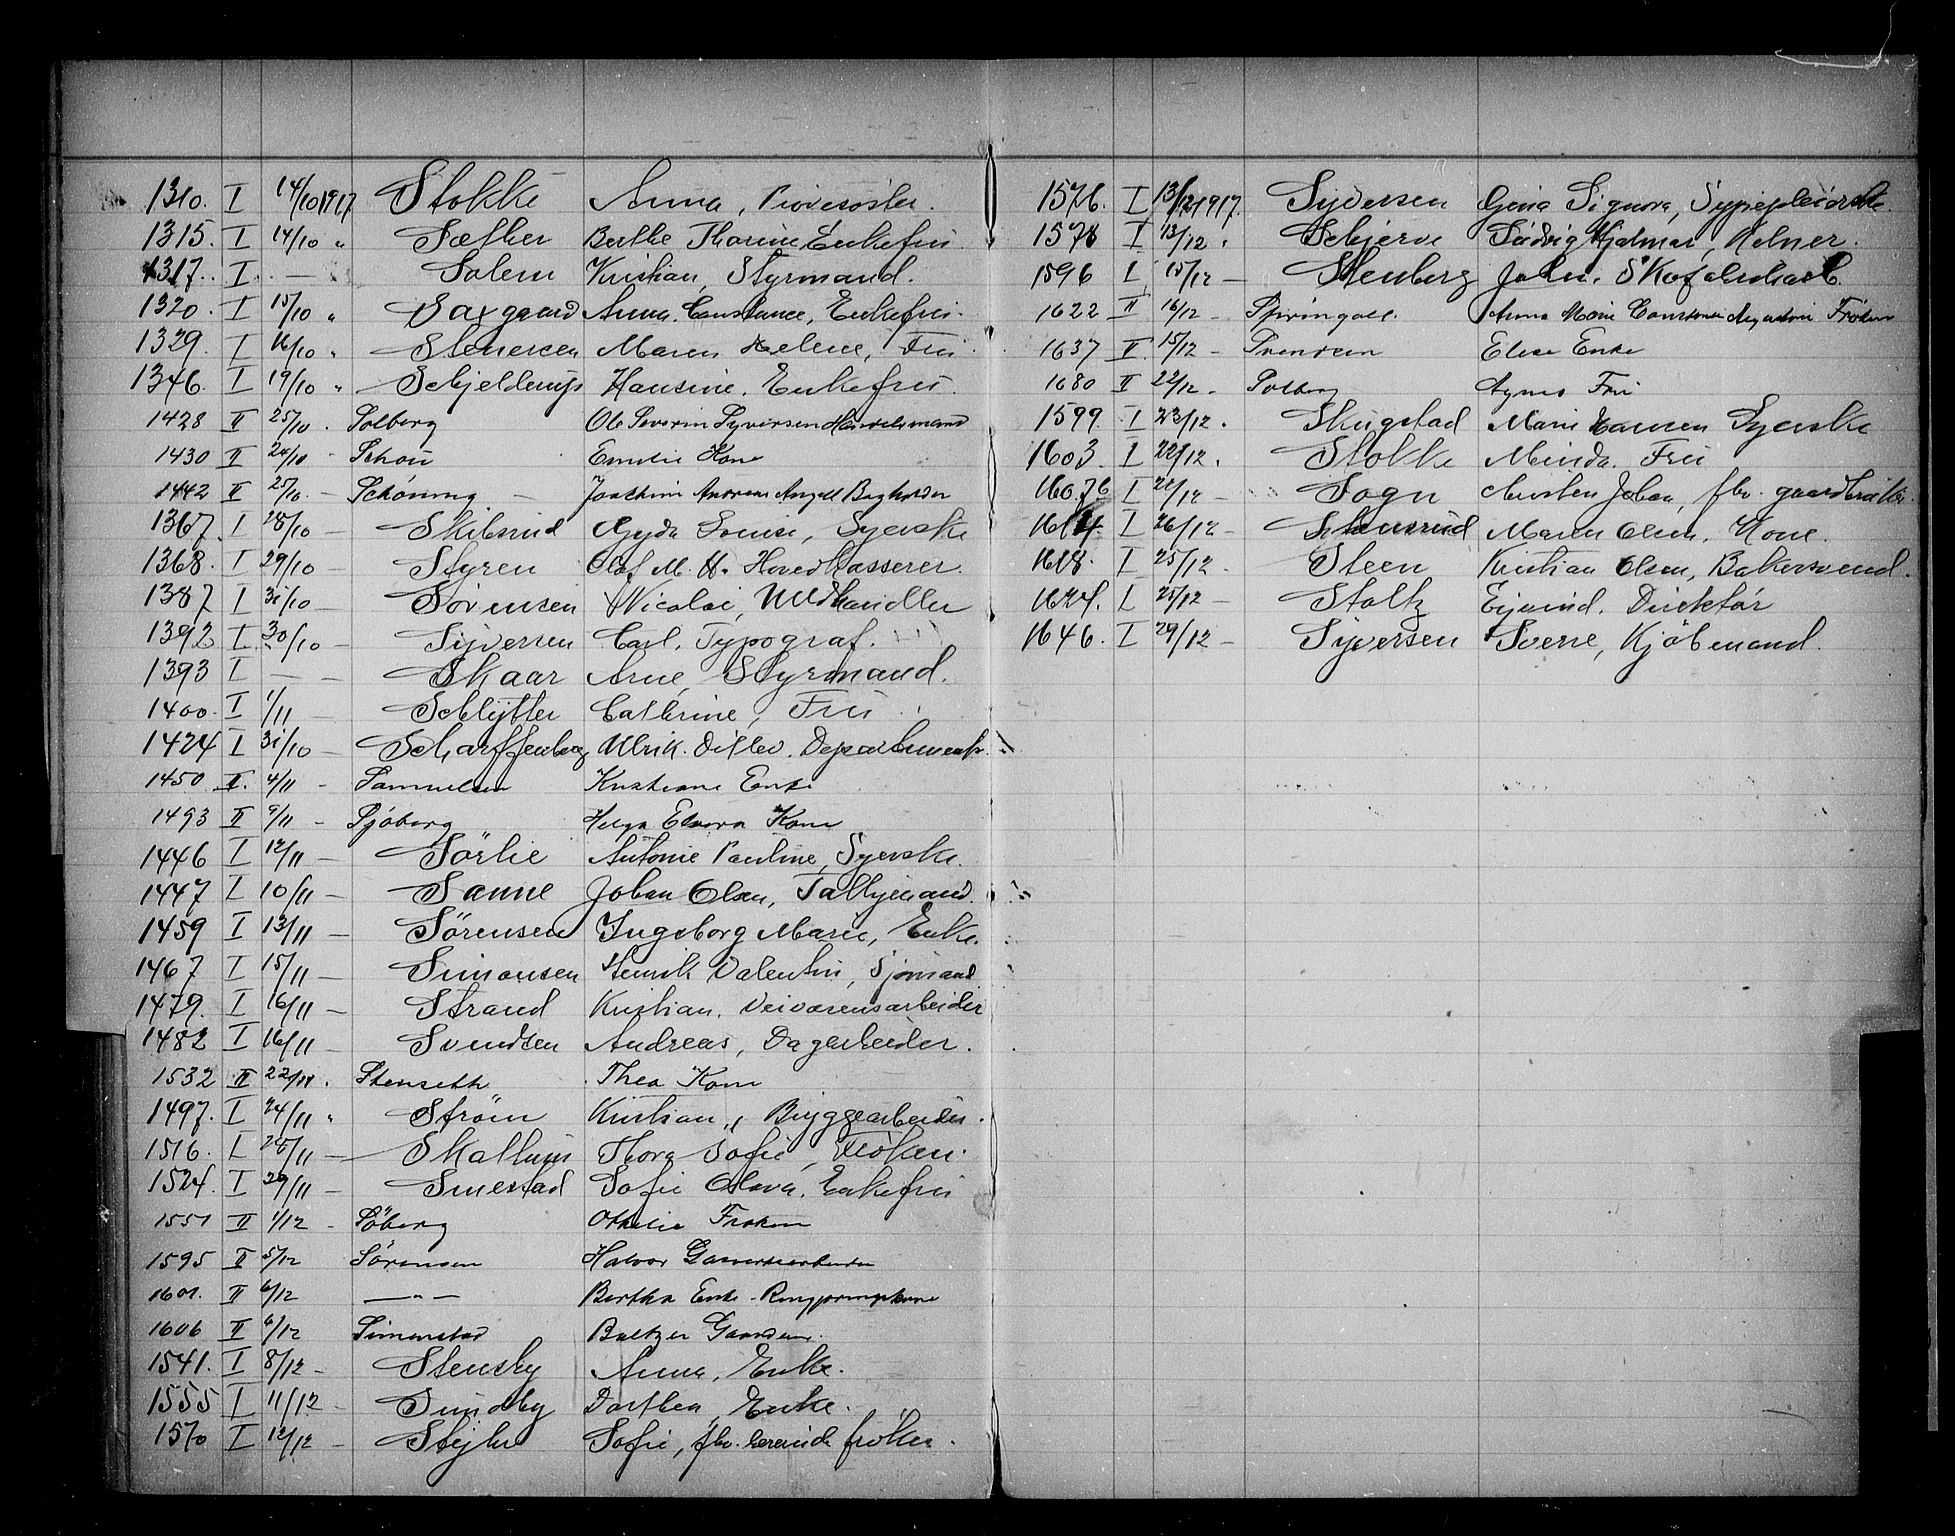 1310. I 14/10 1917 Stokke Anna,
1315. I 14/10 " Sæther Berthe Thorine Enkefru.
1317. I. — Solem Kristian, Styrmand.
1320. I 15/10 " Saxgaard Anna Constance, Enkefru.
1329. I 16/10 " Stenersen Maren Helene, Fru
1346. I 19/10 " Schjelderup Hansine. Enkefru.
1428 II 25/10 . Solberg Ole Severin Syversen Handelsmand
1430 II 24/10 - Schou Emilie Kone
1442 II 25/10 - Schöning Joachim Andreas Angell Bogholder
1367. I 28/10 — Skibsrud Gyda Louise, Syerske
1368. I 29/10 — Styren Olaf M. H. Hovedkasserer.
1387 I 31/10 — Sörensen Nicolai, Uldhandler
1392 I. 30/10 — Syversen Carl, Typograf.
1393 I — — Skaar Arne, Styrmand.
1400. I 1/11 — Schlytter Cathrine, Fru
1424 I 31/10 — Scharffenberg Ulrik Ditlev.
1450 II. 4/11 - Samuelsen Kristiane Enke
1493 II 9/11 - Sjöberg Helga Elvira Kone
1446 I 12/11 — Sörlie Antonie Pauline, Syerske.
1447 I 10/11 — Sanne Johan Olsen, Tallymand.
1459 I 13/11 — Sörensen Ingeborg Marie, Enke.
1467 I 15/11 — Simonsen Henrik Valentin, Sjömand
1479. I 16/11 — Strand Kristian. Veivæsensarbeider
1482 I 16/11 — Svendsen Andreas, Dagarbeider.
1532 II 22/11 . Stenseth Thea Kone
1497. I 24/11 " Ström Kristian, Bryggearbeider.
1516. I 28/11 — Skallum Thora Sofie, Fröken.
1524. I 29/11 — Smestad Sofie Olava, Enkefru
1551 II 1/12 - Söberg Othilie Fröken
1595 II 5/12 Sörensen Halvor
1601. II 6/12 — " — Bertha Enke
1606 II 6/12 Simenstad Baltzer
1541. I 8/12 - Stensby Anna, Enke.
1555 I 11/12 — Sundby Dorthea, Enke.
1570 I 12/12 — Stejler Sofie, fhv. lærerinde fröken.
1576. I 13/12 1917. Syversen Gina Signora, Sypleierske.
1578 I 13/12 . Schjerve Ludvig Hjalmar, Kelner.
1596 I 15/12 — Stenberg John. Skofabrikarb.
1622 II 16/12 - Spiringall Anna Marie Constance Augustine Fröken
1637 II 15/12 - Svendsen Elise Enke
1680 II 22/12 . Solberg Agnes Fru
1599. I 23/12 . Skugstad Marie Hansen Syerske
1603. I 22/12 . Stokke Minda. Fru
I 21/12 — Sogn Johan, fhv. gaardbruker.
1614. I 26/12 — Stensrud Maren Olsen, Kone.
1618. I 25/12 . Steen Kristian Olsen, Bakersvend.
1624. I 25/12 — Stoltz Eivind. Direktör
1646. I 29/12 — Syversen Sverre, Kjöbmand.